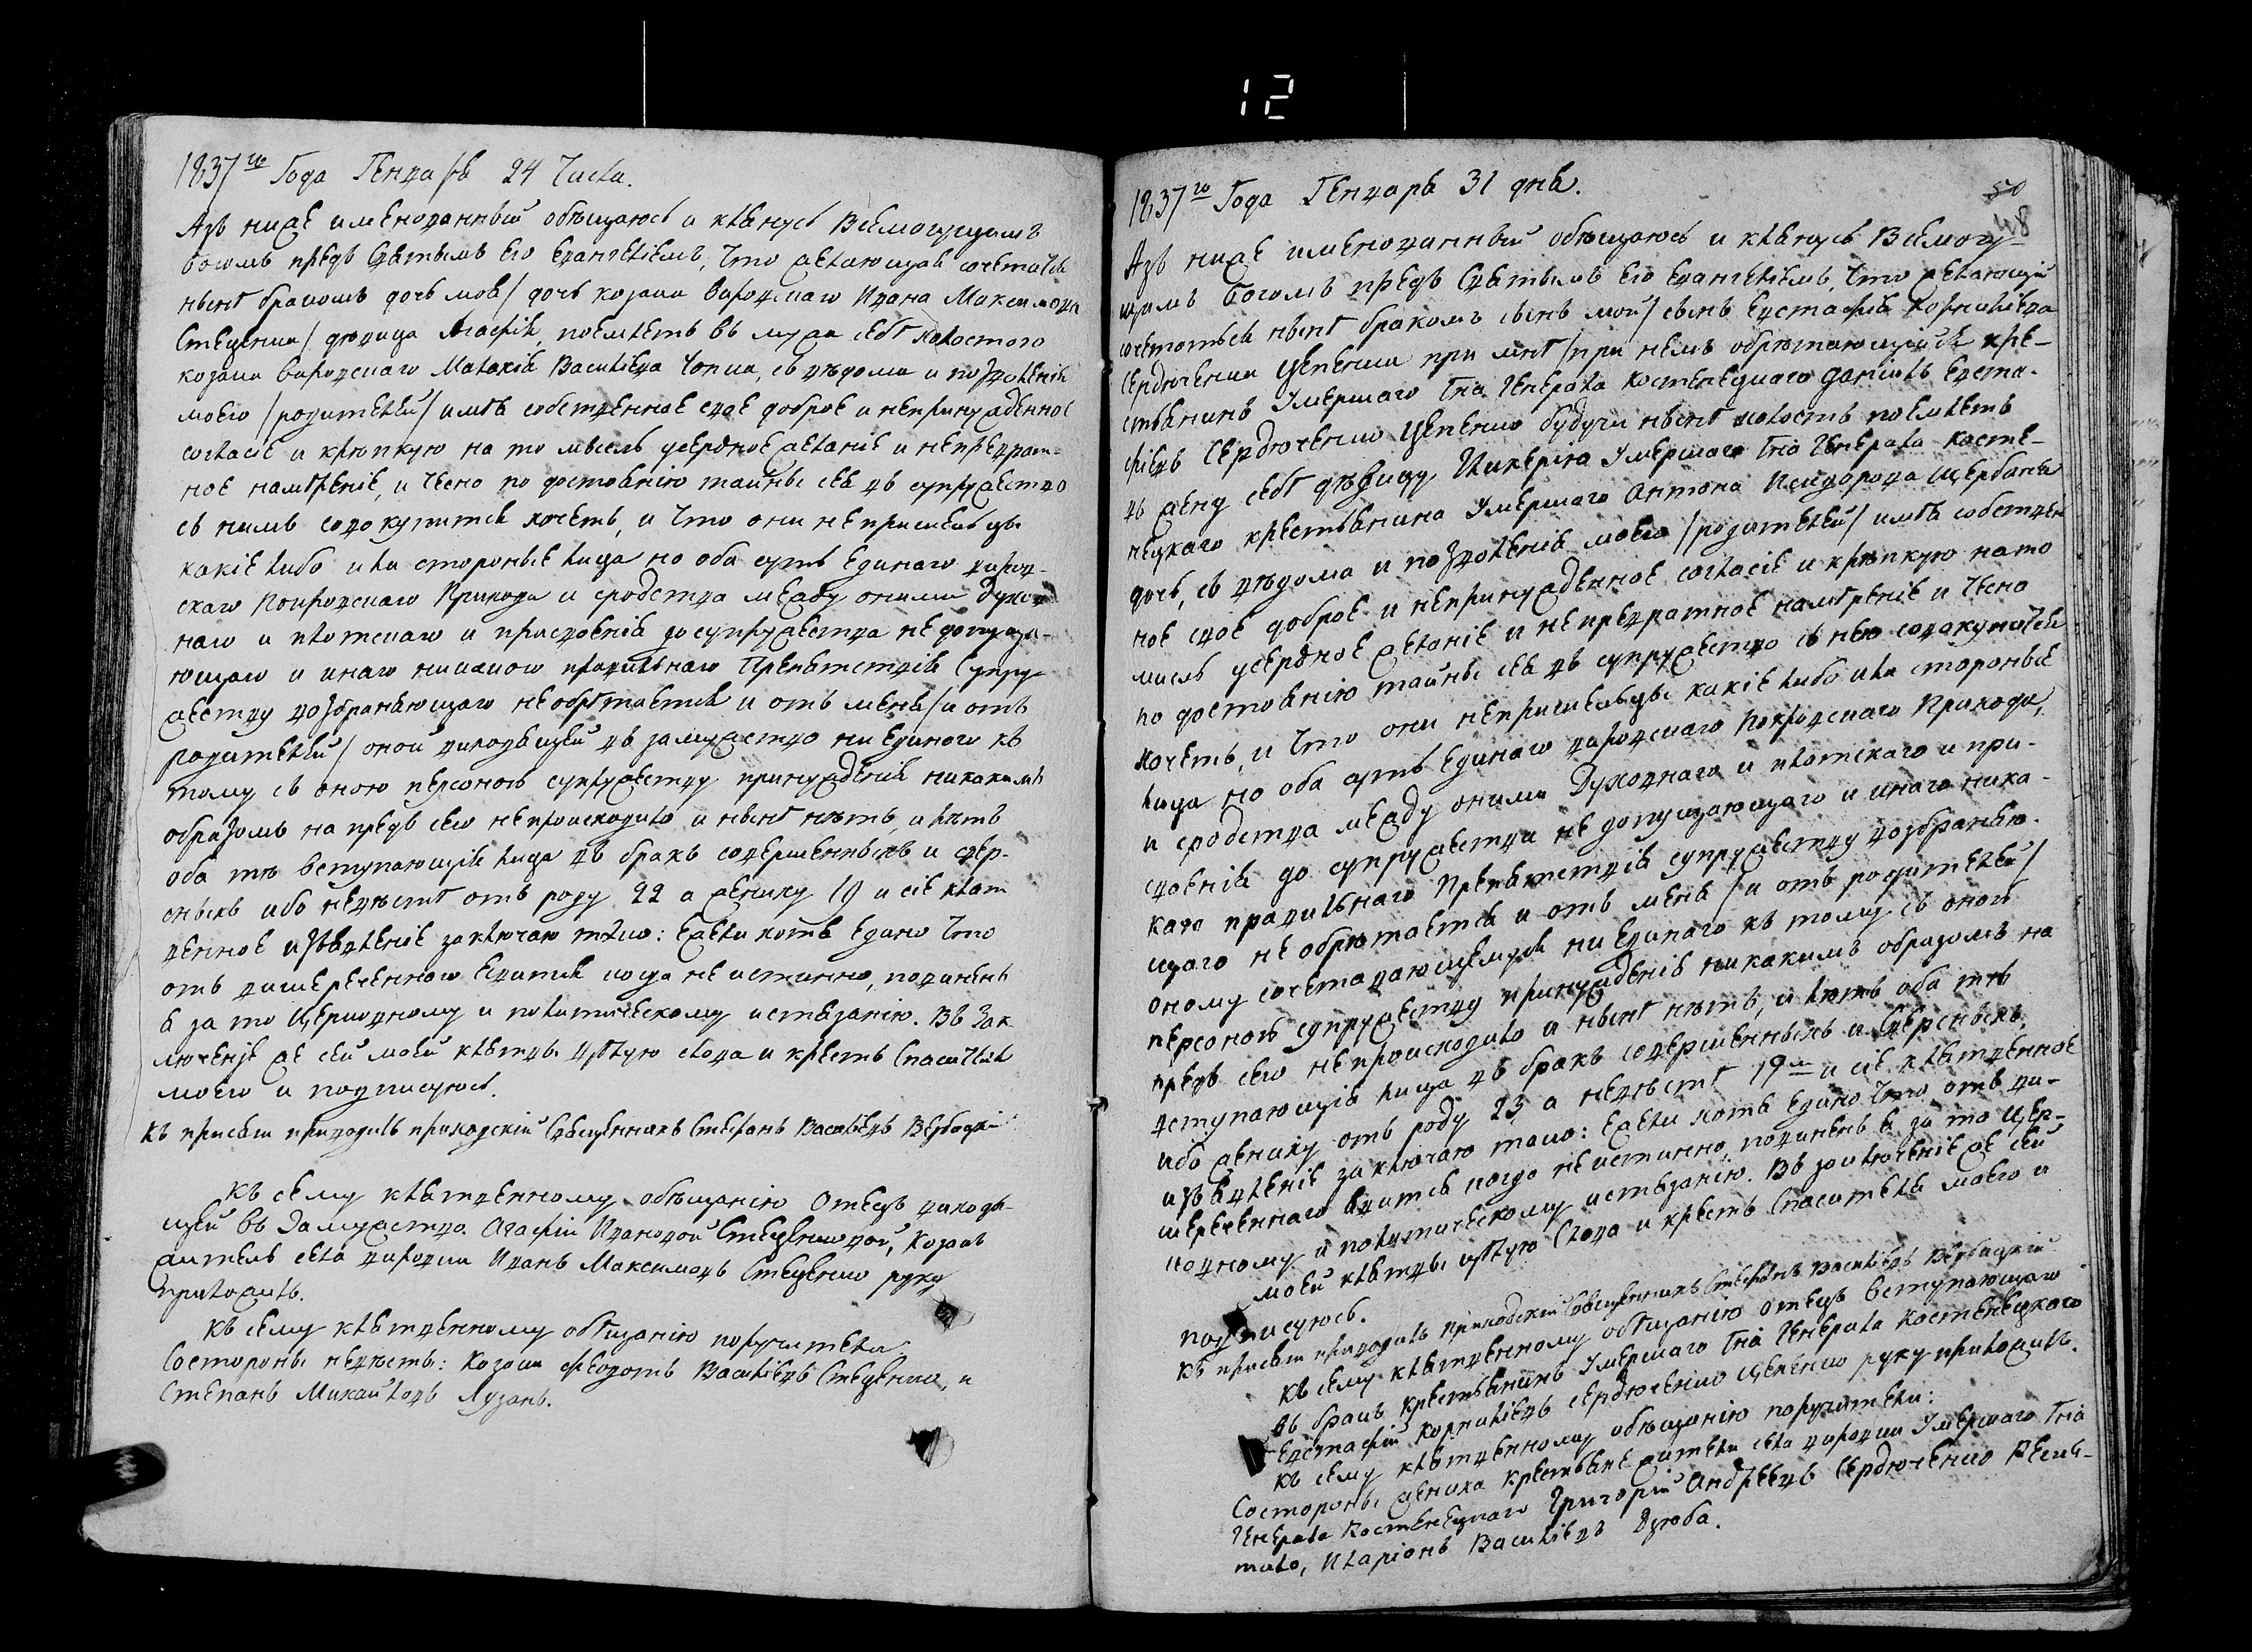 12
1837го Года Генваря 24 Числа.
Азъ ниже именованный обѣщаюсь и клянусь Всемогущимъ
богомъ предъ Святымъ Его Евангелiемъ, Что желающая сочетатся
нынѣ бракомъ дочь моя / дочь козака Ивана Максимова
Стеценка / дѣвица Агафiя, поемлетъ въ мужа себѣ холостого
козака Василiева Чопка, съ вѣдома и позволенiя
моего / родителей / имѣя собственное свое доброе и непринужденное
согласiе и крѣпкую на то мысль усердное желанiе и непревратъ-
ное намѣренiе, и Чесно по достоянiю тайны сея въ супружество
съ нимъ совокупится хочетъ, и Что они не пришельцы
какiе либо или стороныe лица но оба суть Единаго
скаго Покровскаго Прихода и сродства между оними Духов
наго и плотскаго и присвоенiя до супружества не допуща-
ющаго и инаго никакого правильнаго Препятствiя Супру-
жеству возбраняющаго не обрѣтается и отъ меня / и отъ
родителей / оной виходящей въ замужество ни единого къ
тому съ оною персоною супружеству принужденiя никакимъ
образомъ на предъ сего не происходило и нынѣ нѣтъ, и лѣтъ
оба тѣ вступающiя лица въ бракъ совершенныхъ и свер-
оныхъ ибо невѣстѣ отъ роду 22 а жениху 19 и сiе клят
венное изъявленiе заключаю тако: Ежели хотя Едино Что
отъ вишереченного явится когда не истинно, повиненъ
я за то Церковному и политическому истязанiю. Въ Зак
люченiе же сей моей клятвы цѣлую слова и крестъ Спасителя
моего и подписуюсь.
Къ присяги приводилъ приходскiй Священникъ Стефанъ Василiевъ Вербицкiй
Къ сему клятвенному обѣщанiю Отецъ виходя-
щей въ Замужество Агафiи Ивановой Стеценковой, Козакъ
житель села Иванъ Максимовъ Стеценко руку
приложилъ.
Къ сему клятвенному обѣщанiю поручители
Состороны невѣсты: Козаки Федотъ Василiевъ Стеценко, и
Степанъ Михайловъ Лузанъ.
1837го Года Генваря 31 дня.
50
48
Азъ ниже именованный обѣщаюсь и клянусь Всемогу-
щимъ богомъ предъ Святымъ Его Евангелiемъ, Что желающiй
сочетатся нынѣ бракомъ сынъ мой / сынъ Евстафiя Корнилiева
Сердюченка Цепенка при мнѣ / при немъ обрѣтающийся кре-
стянинъ Умершаго Гна Генерала Костенецкаго Данiилъ Евста-
фiевъ Сердюченко Цепенко будучи нынѣ холостъ поемлетъ
въ жену себѣ дѣвицу Гликерiю Умершаго Гна Генерала Косте-
нецкаго крестянина Умершаго Антона Щербаня
дочь, съ вѣдома и позволенiя моего / родителей / имѣя собствен
ное свое доброе и непринужденное согласiе и крѣпкую на то
мисль усердное желанiе и не превратное намѣренiе и Чесно
по достоянiю тайны сея въ супружество съ нею совокупится
хочетъ, и Что они непришельцы какiе либо или стороныe
лица но оба суть Единаго Покровскаго Прихода,
и сродства между оними Духовнаго и плотскаго и при-
своенiя до супружества не допущающаго и инаго ника-
каго правильнаго Препятствiя супружеству возбраняю-
щаго не обрѣтается и отъ меня / и отъ родителей /
оному сочетавающемуся ни единаго къ тому съ оною
персоною супружеству принужденiя никакимъ образомъ на
предъ сего не происходило и нынѣ нѣтъ, и лѣтъ оба тѣ
вступающiя лица въ бракъ совершенныхъ и сверсныхъ,
ибо жениху отъ роду 23 а невѣстѣ 19 и сiе клятвенное
изъявленiе заключаю тако: Ежели хотя Едино Что отъ ви-
шереченнаго явится когда не истинно, повиненъ я за то Цер-
ковному и политическому истязанiю. Въ заключенiе же сей
моей клятвы цѣлую Слова и крестъ Спасителя моего и
подписуюсь.
Къ присяги приводилъ Приходскiй Священникъ Стефанъ Василiевъ Вербицкiй
Къ сему клятвенному обѣщанiю отецъ вступающаго
въ бракъ Крестянинъ Умершаго Гна Генерала Костенецкаго
Евстафiй Корнилiевъ Сердюченко Цепенко руку приложилъ.
Къ сему клятвенному обѣщанiю поручители:
Состороны жениха Крестяне жители села Умершаго Гна
Генерала Костенецкаго Григорiй Андрѣевъ Сердюченко
Иларiонъ Василiевъ Дзюба.